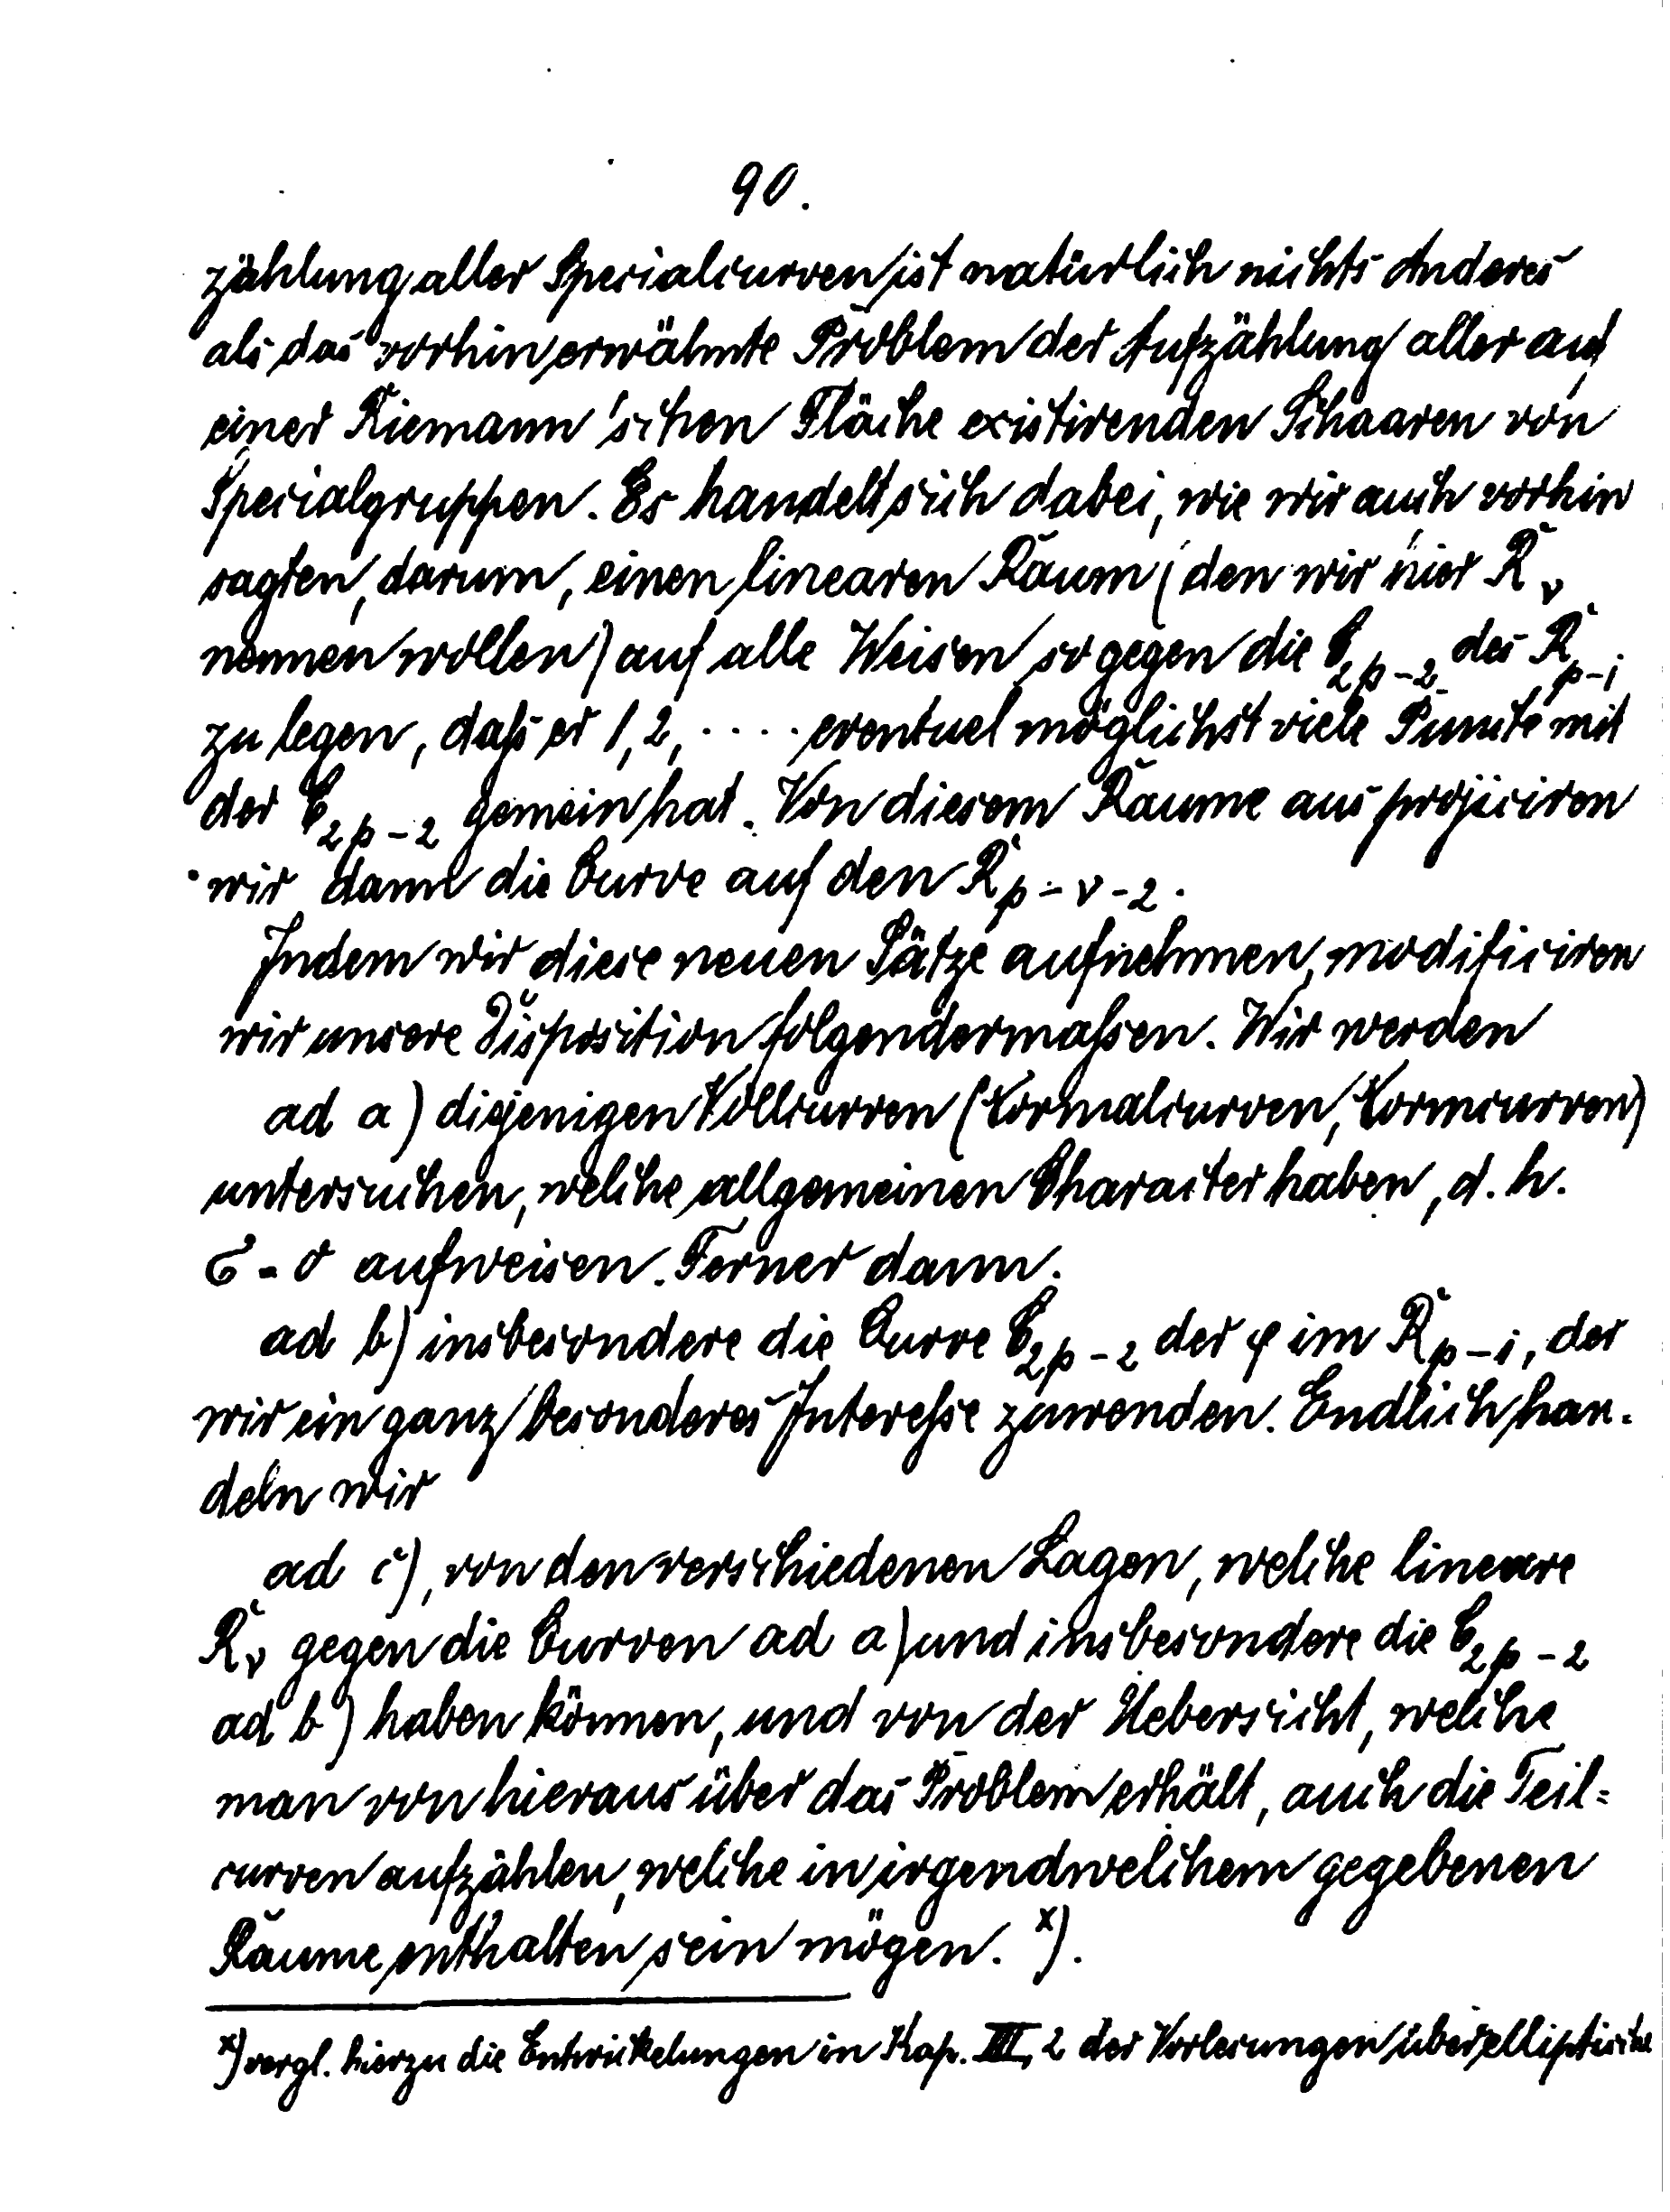 90.
zählung aller Specialcurven ist natürlich nichts Anderes
als das vorhin erwähnte Problem der Aufzählung aller auf
einer Riemann'schen Fläche existirenden Schaaren von
Specialgruppen. Es handelt sich dabei, wie wir auch vorhin
sagten, darum, einen linearen Raum (den wir hier R_ν
nennen wollen) auf alle Weisen so gegen die C_{2p-2} des R_{p-1}
zu legen, daß er 1, 2, .... eventuel möglichst viele Puncte mit
der C_{2p-2} gemein hat. Von diesem Raume aus projiciren
wir dann die Curve auf den R_{p-ν-2}.
Indem wir diese neuen Sätze aufnehmen, modificiren
wir unsere Disposition folgendermaßen. Wir werden
ad a) diejenigen Vollcurven (Normalcurven, Normcurven)
untersuchen, welche allgemeinen Character haben, d. h.
σ = 0 aufweisen. Ferner dann.
ad b) insbesondere die Curve C_{2p-2} der φ im R_{p-1}, der
wir ein ganz besonderes Interesse zuwenden. Endlich han-
deln wir
ad c), von den verschiedenen Lagen, welche lineare
R_ν gegen die Curven ad a) und insbesondere die C_{2p-2}
ad b) haben können, und von der Uebersicht, welche
man von hieraus über das Problem erhält, auch die Teil=
curven aufzählen, welche in irgendwelchem gegebenen
Raume enthalten sein mögen. x).
x) vergl. hierzu die Entwickelungen in Kap. III, 2 der Vorlesungen über elliptische